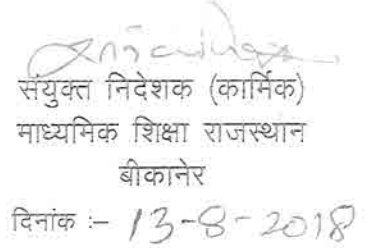 संयुक्त निदेशक (कार्मिक)
माध्यमिक शिक्षा राजस्थान
बीकानेर
दिनांक :– 13-8-2018